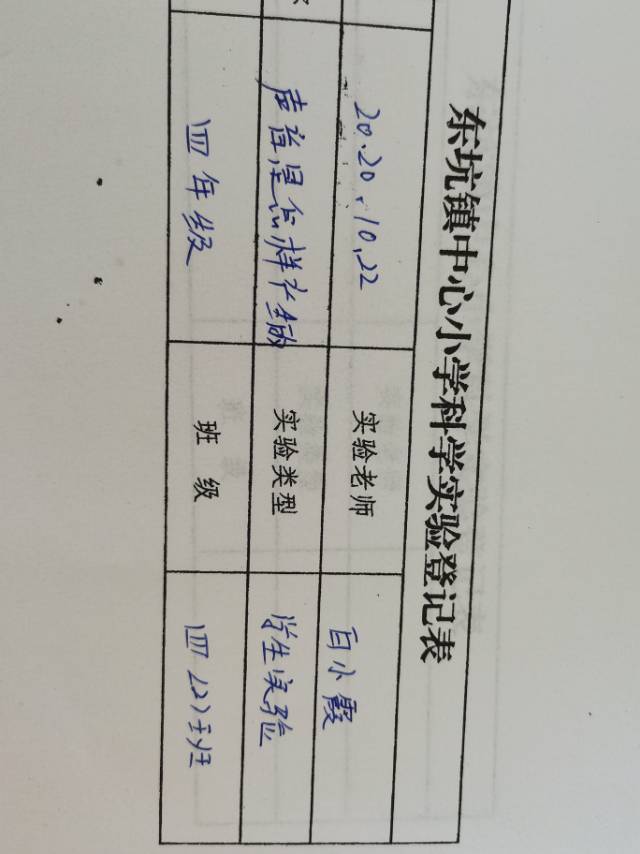 东坑镇中心小学科学实验登记表
20.20.10.22 实验老师 白小霞
声音是怎样产生的 实验类型 学生实验
四年级 班 级 四(2)班